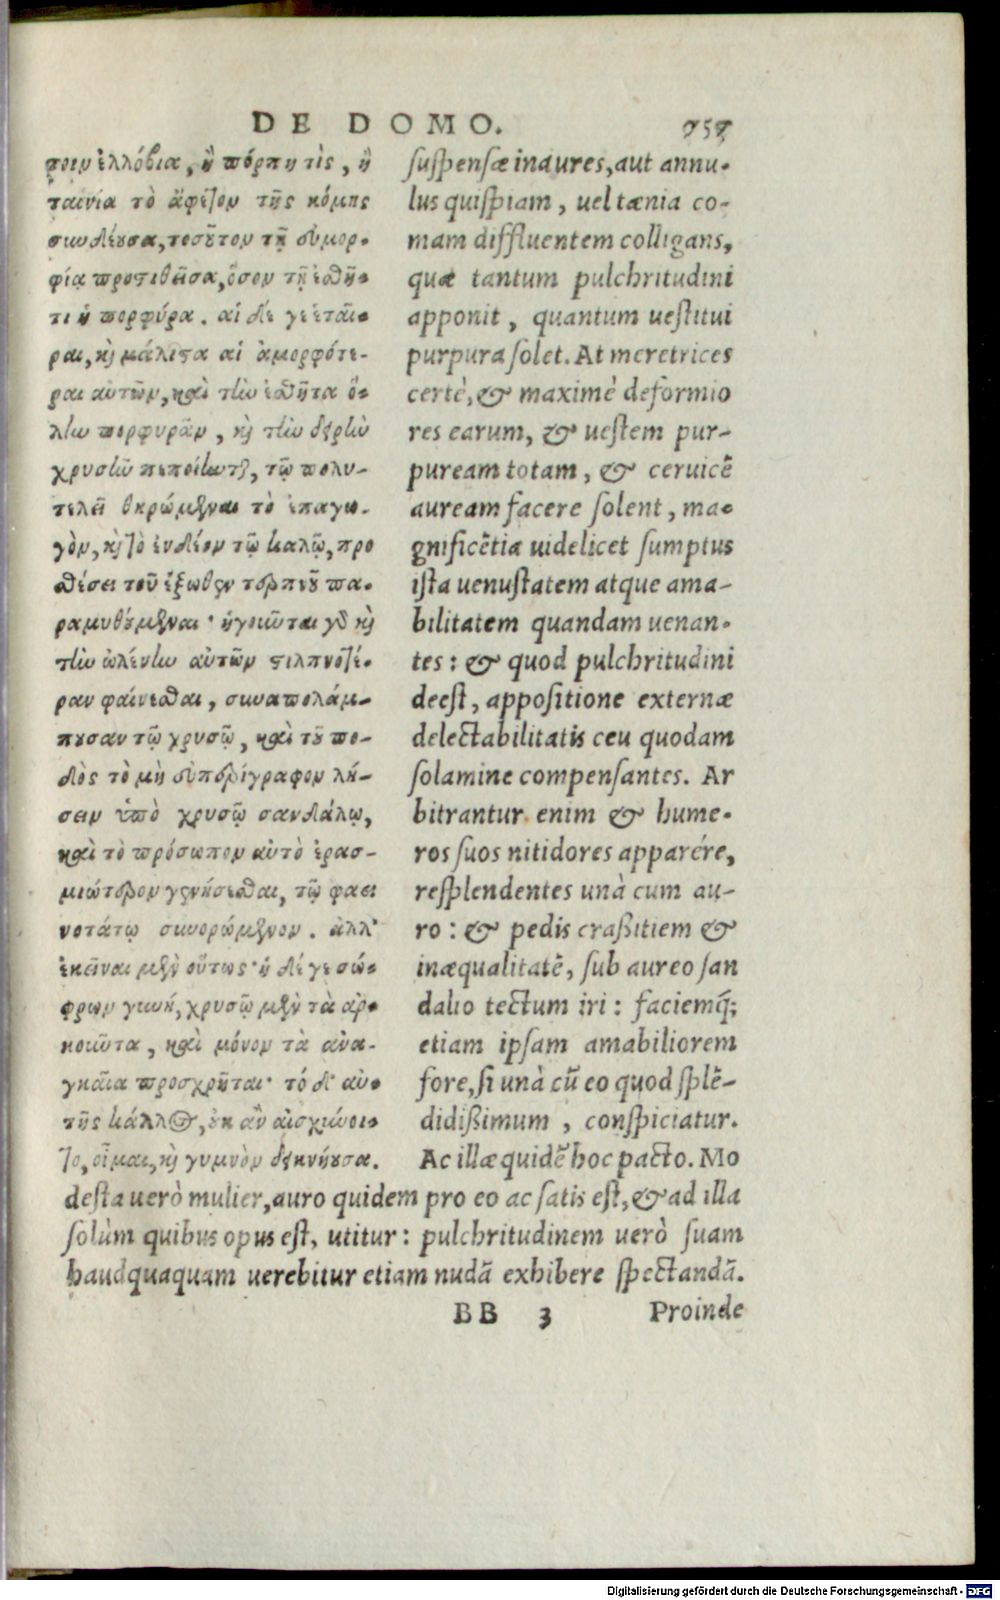 DE DOMO. 757
ποιν ἐλλόβια, ἢ πόρπη τὶς, ἢ
ταινία τὸ ἄφετον τῆς κόμης
συνδέουσα, τοσοῦτον τῇ εὐμορ-
φίᾳ προστιθεῖσα, ὅσον τῇ ἐσθῆ-
τι ἡ πορφύρα. αἱ δέ γε ἑταῖ-
ραι, καὶ μάλιστα αἱ ἀμορφότε-
ραι αὐτῶν, καὶ τὴν ἐσθῆτα ὅ-
λην πορφυρᾶν, καὶ τὴν δειρὴν
χρυσῆν πεποίηνται, τῷ πολυ-
τελεῖ θηρώμεναι τὸ ἐπαγω-
γὸν, καὶ τὸ ἐνδέον τῷ καλῷ, προ
θέσει τοῦ ἔξωθεν τερπνοῦ πα-
ραμυθούμεναι· ἡγοῦνται γὰρ καὶ
τὴν ὠλένην αὐτῶν στιλπνοτέ-
ραν φαίνεσθαι, συναπολάμ-
πουσαν τῷ χρυσῷ, καὶ τοῦ πο-
δὸς τὸ μὴ εὐπερίγραφον λή-
σειν ὑπὸ χρυσῷ σανδάλῳ,
καὶ τὸ πρόσωπον αὐτὸ ἐρασ-
μιώτερον γενήσεσθαι, τῷ φαει
νοτάτῳ συνορώμενον. ἀλλ'
ἐκεῖναι μὲν οὕτως· ἡ δέ γε σώ-
φρων γυνὴ, χρυσῷ μὲν τὰ ἀρ-
κοῦντα, καὶ μόνον τὰ ἀνα-
γκαῖα προσχρῆται· τό δ' αὑ-
τῆς κάλλος, οὐκ ἂν αἰσχύνοι-
το, οἶμαι, καὶ γυμνὸν δεικνύουσα.
suspensæ inaures, aut annu-
lus quispiam, uel tænia co-
mam diffluentem colligans,
quæ tantum pulchritudini
apponit, quantum uestitui
purpura solet. At meretrices
certè, & maximè deformio
res earum, & uestem pur-
puream totam, & ceruicē
auream facere solent, ma-
gnificētia uidelicet sumptus
ista uenustatem atque ama-
bilitatem quandam uenan-
tes: & quod pulchritudini
deest, appositione externæ
delectabilitatis ceu quodam
solamine compensantes. Ar
bitrantur enim & hume-
ros suos nitidores apparére,
resplendentes unà cum au-
ro: & pedis craßitiem &
inæqualitatē, sub aureo san
dalio tectum iri: faciemq́;
etiam ipsam amabiliorem
fore, si unà cū eo quod splē-
didißimum, conspiciatur.
Ac illæ quidē hoc pacto. Mo
desta uerò mulier, auro quidem pro eo ac satis est, & ad illa
solùm quibus opus est, utitur: pulchritudinem uerò suam
haudquaquam uerebitur etiam nudā exhibere spectandā.
BB 3 Proinde
Digitalisierung gefördert durch die Deutsche Forschungsgemeinschaft - DFG